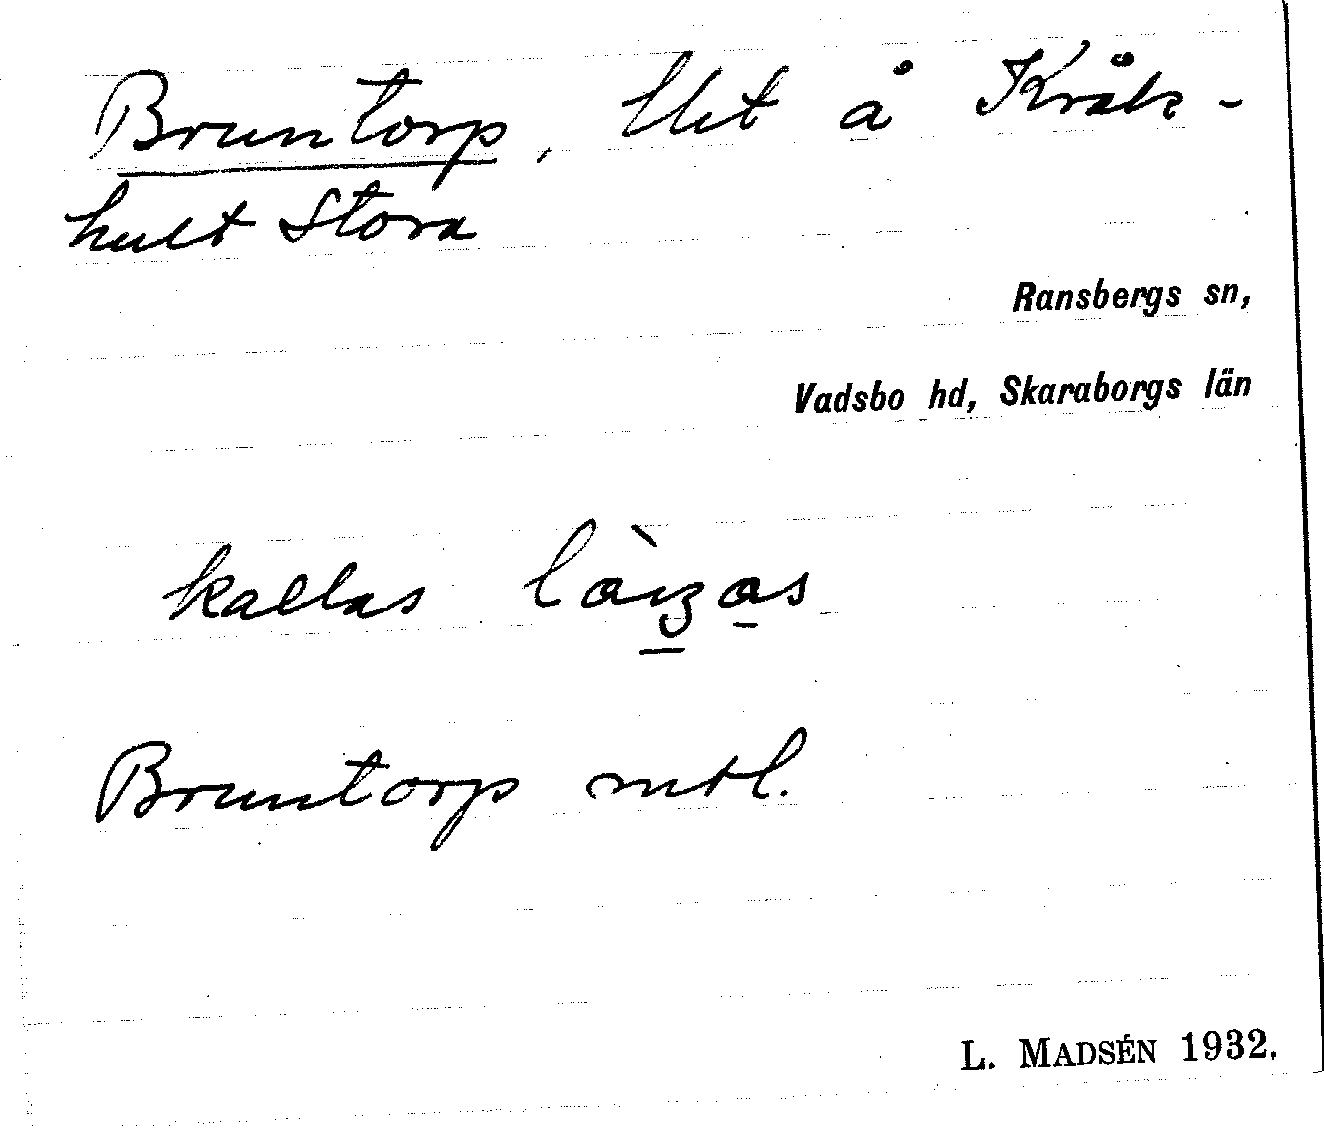 Bruntorp, lht å Kråk-
hult Stora
Ransbergs sn,
Vadsbo hd, Skaraborgs län
kallas
Bruntorp mtl.
L. MADSÉN 1932.